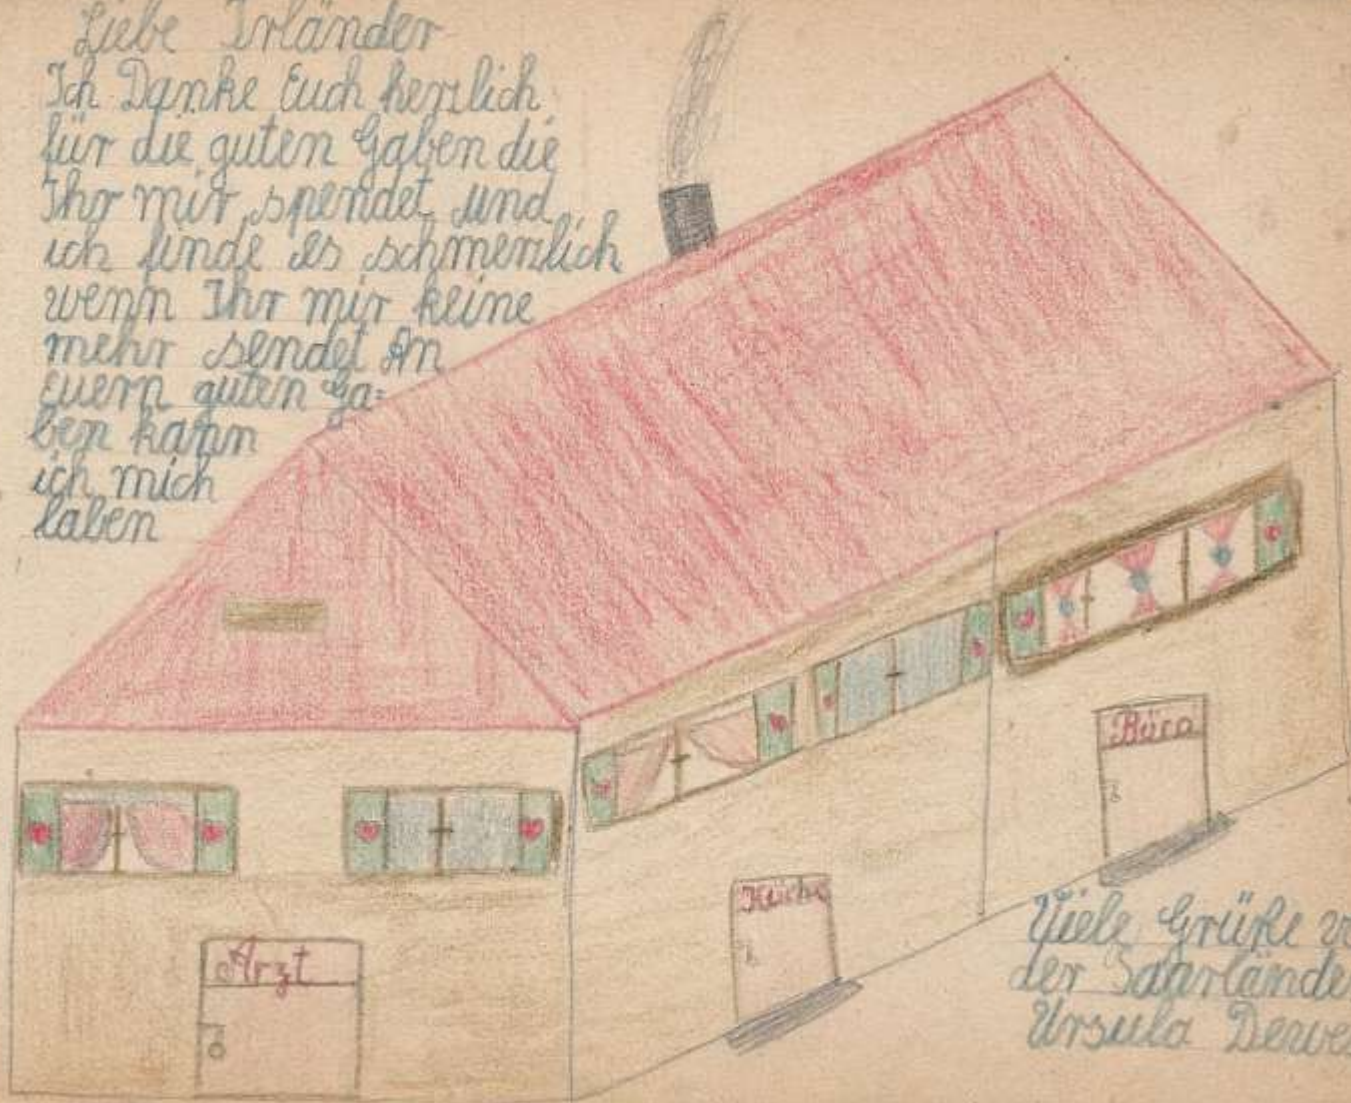 Liebe Irländer
Ich Danke Euch herzlich
für die guten Gaben die
Ihr mir spendet und
ich finde es schmerzlich
wenn Ihr mir keine
mehr sendet An
euern guten Ga=
ben kann
ich mich
laben
Arzt
Küche
Büro
Viele Grüße
der Saarlände
Ursula